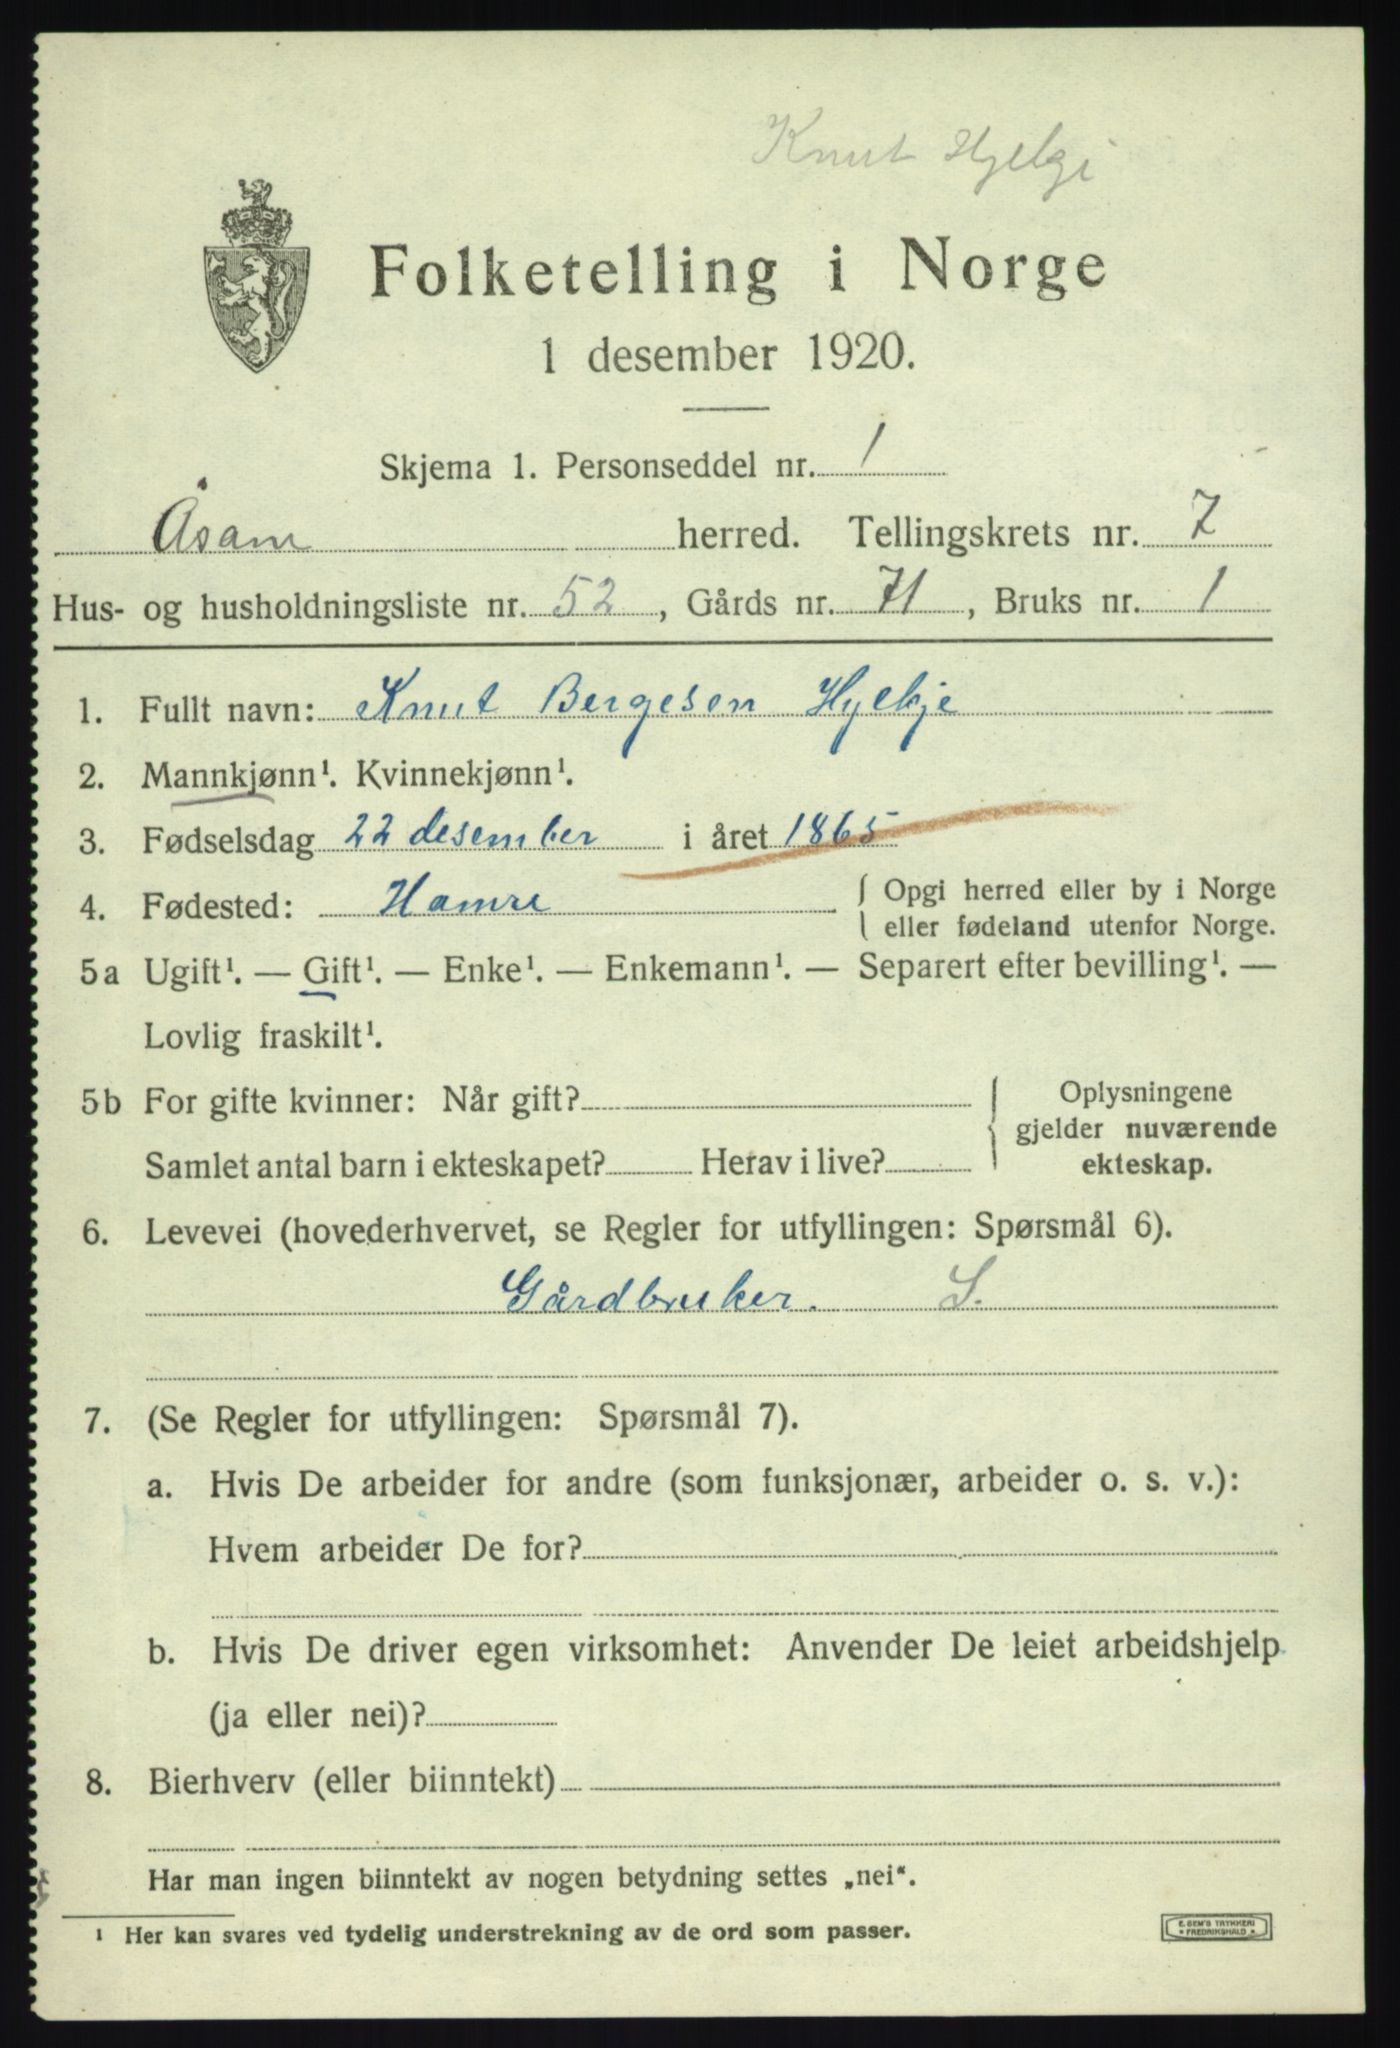 Knut Hjelgi
Folketelling i Norge
1 desember 1920.
Skjema 1. Personseddel nr. 1
Åsane herred. Tellingskrets nr. 7
Hus- og husholdningsliste nr. 52, Gårds nr. 71, Bruks nr. 1
1. Fullt navn: Knut Bergesen Hylkje
2. Mannkjønn¹. Kvinnekjønn¹.
3. Fødselsdag 22 desember i året 1865
4. Fødested: Hamre { Opgi herred eller by i Norge
eller fødeland utenfor Norge.
5a Ugift¹. — Gift¹. — Enke¹. — Enkemann¹. — Separert efter bevilling¹. —
Lovlig fraskilt¹.
5b For gifte kvinner: Når gift? { Oplysningene
gjelder nuværende
Samlet antal barn i ekteskapet? Herav i live? ekteskap.
6. Levevei (hovederhvervet, se Regler for utfyllingen: Spørsmål 6).
Gårdbruker. S.
7. (Se Regler for utfyllingen: Spørsmål 7).
a. Hvis De arbeider for andre (som funksjonær, arbeider o. s. v.):
Hvem arbeider De for?
b. Hvis De driver egen virksomhet: Anvender De leiet arbeidshjelp
(ja eller nei)?
8. Bierhverv (eller biinntekt)
Har man ingen biinntekt av nogen betydning settes „nei“.
¹ Her kan svares ved tydelig understrekning av de ord som passer.
E. SEM'S TRYKKERI
• FREDRIKSHALD •